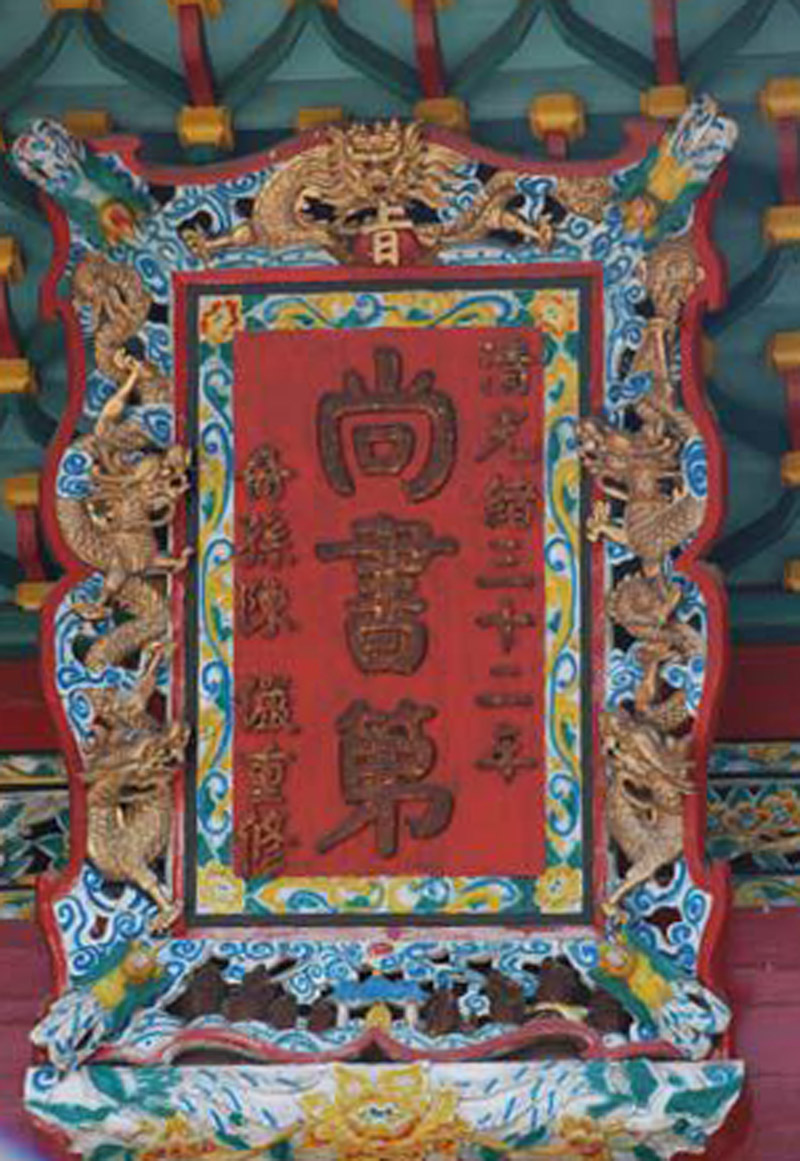 旨
清光緒三十二年
尚書第
裔孫陳 重修